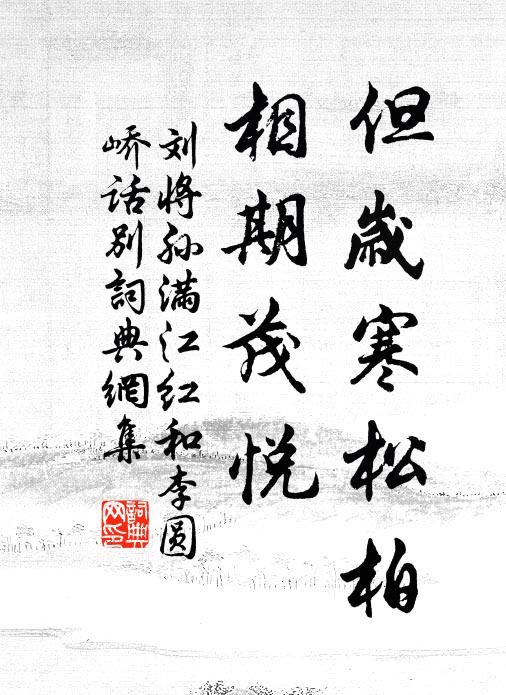 但歲寒松柏
相期茂悅
刘将孙满江红和李圆
峤话别詞典網集
詞典
网印